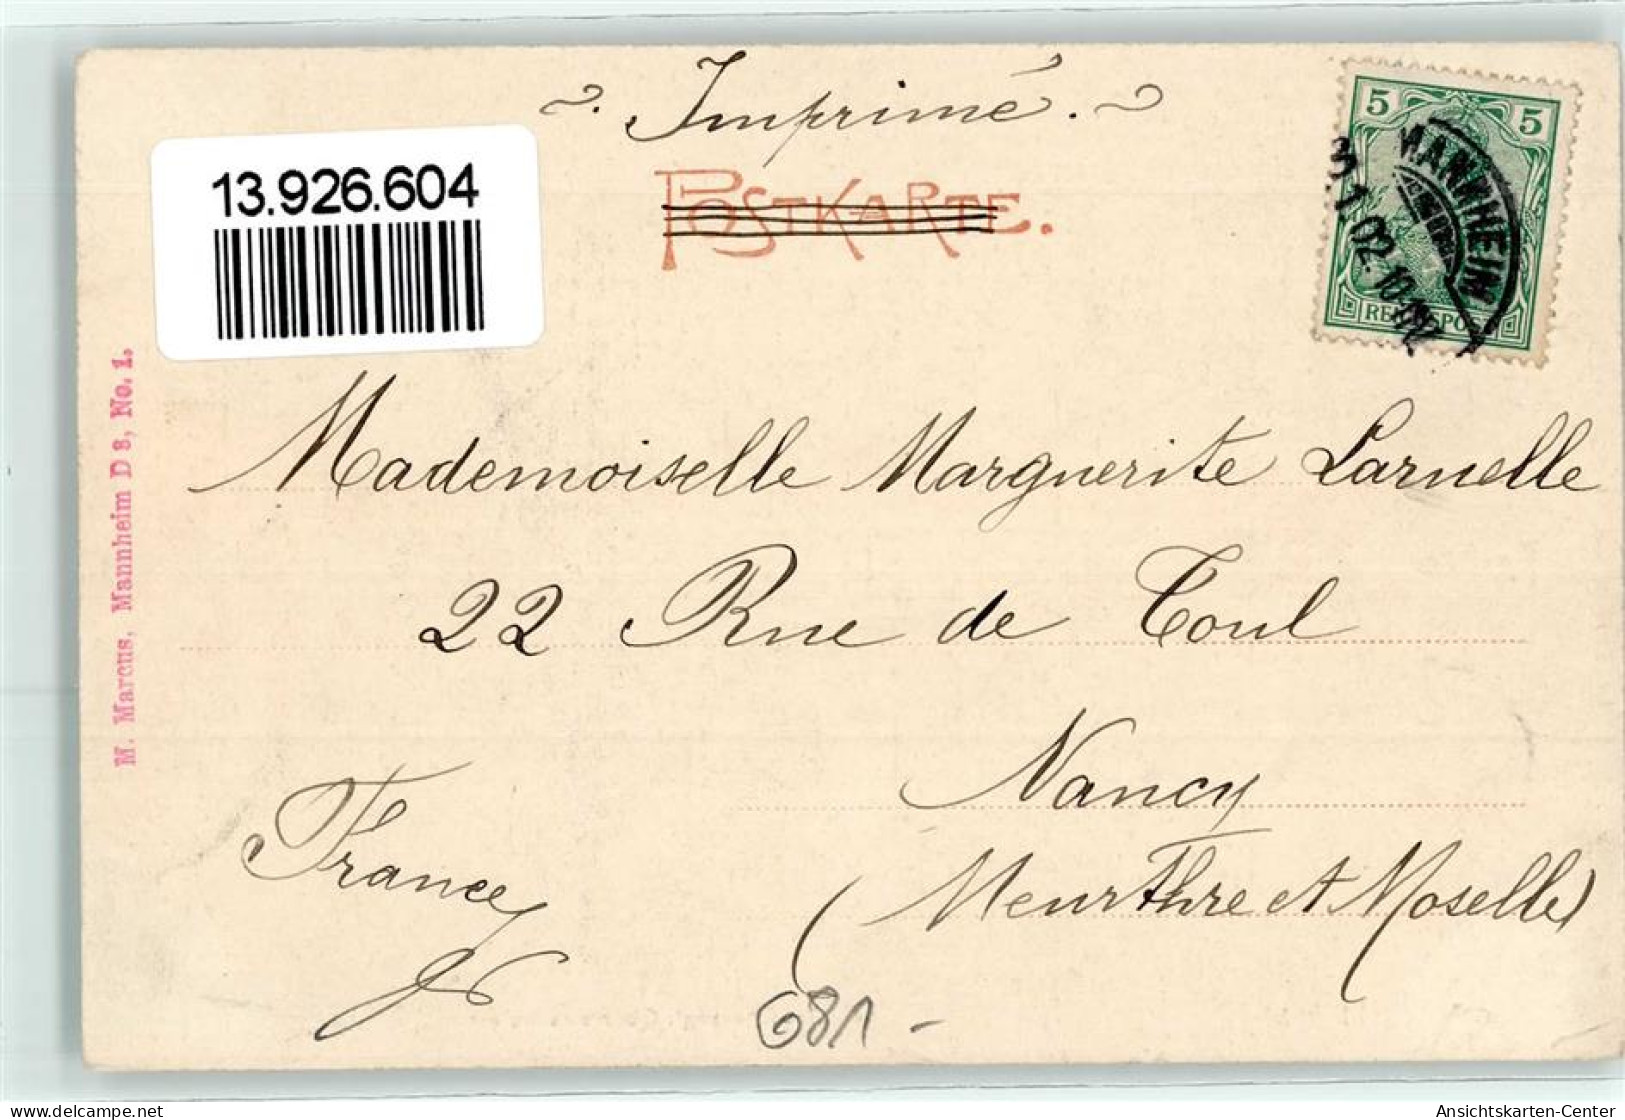 Imprimé.
13.926.604
POSTKARTE.
5 5
MANNHEIM
02. 10-
REICHSPOST
M. Marcus, Mannheim D 3, No. 1.
Mademoiselle Marguerite Larnelle
22 Rue de Toul
Nancy
France
(Meurthre et Moselle)
681 -
delcampe.net
Ansichtskarten-Center